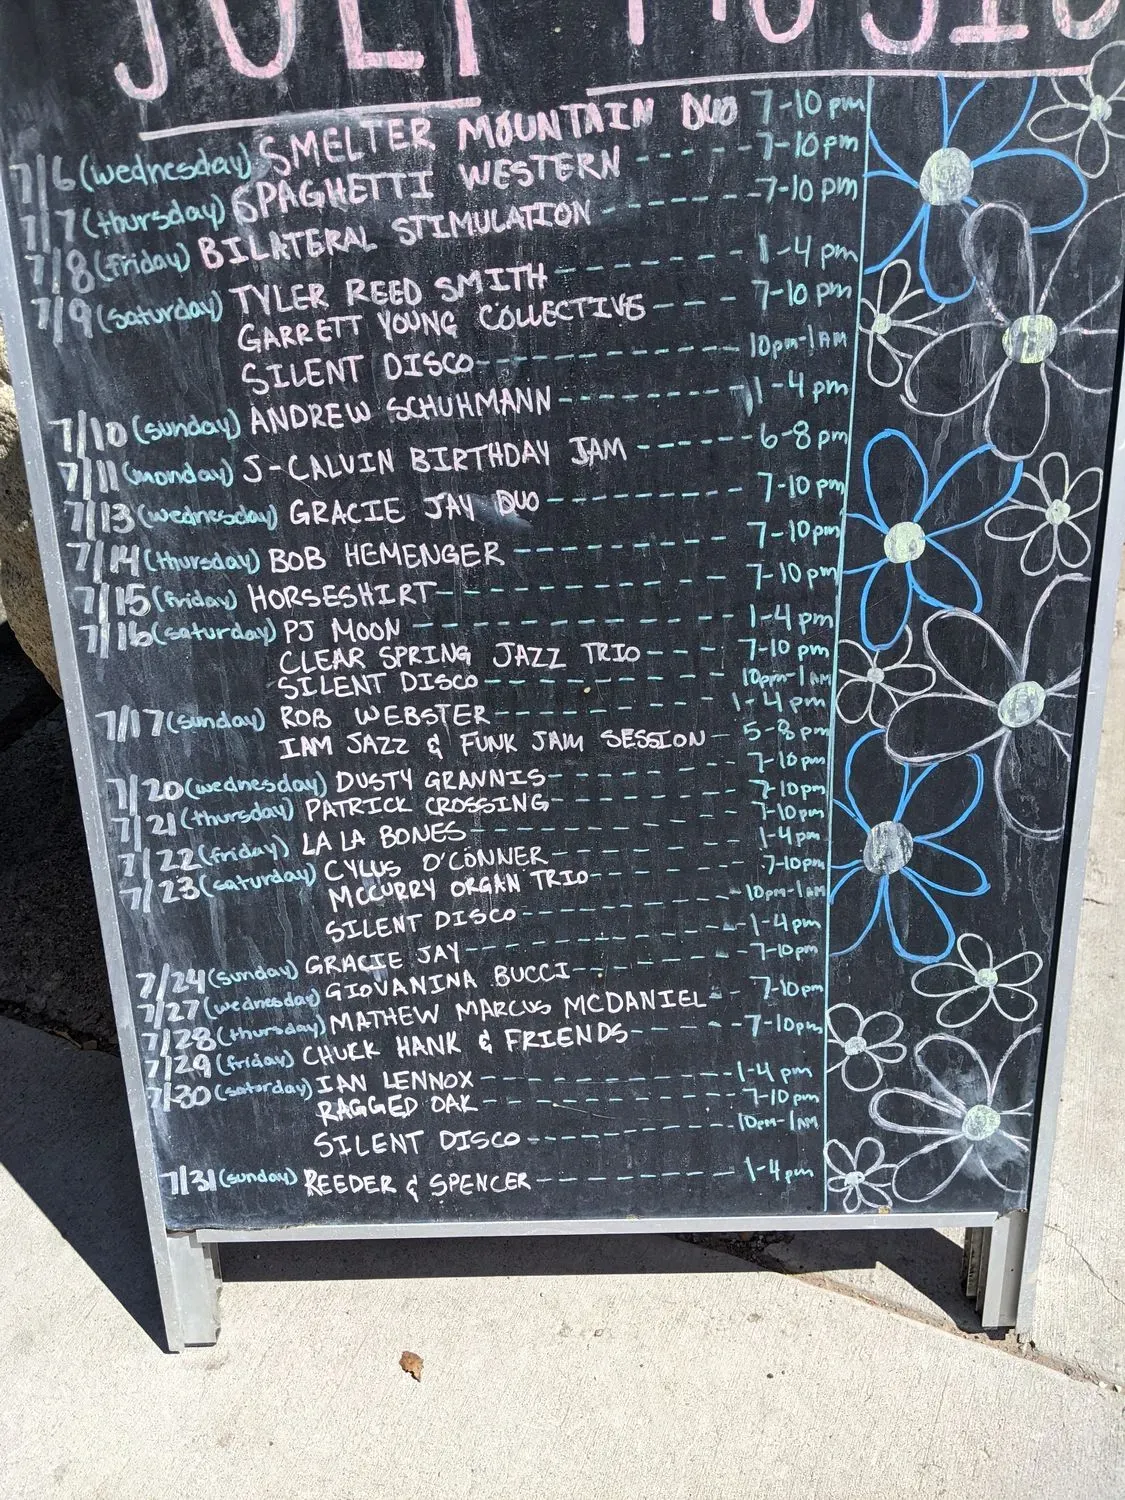 JULY MUSIC
7/6 (wednesday) SMELTER MOUNTAIN DUO 7-10 pm
7/7 (thursday) SPAGHETTI WESTERN ---- 7-10pm
7/8 (friday) BILATERAL STIMULATION ------ 7-10 pm
7/9 (saturday) TYLER REED SMITH -------- 1-4 pm
GARRETT YOUNG COLLECTIVE ---- 7-10 pm
SILENT DISCO ------------ 10pm-1AM
7/10 (sunday) ANDREW SCHUHMANN -------- 1-4 pm
7/11 (monday) J-CALVIN BIRTHDAY JAM ------ 6-8 pm
7/13 (wednesday) GRACIE JAY DUO --------- 7-10 pm
7/14 (thursday) BOB HEMENGER ---------- 7-10pm
7/15 (friday) HORSESHIRT ------------ 7-10 pm
7/16 (saturday) PJ MOON -------------- 1-4 pm
CLEAR SPRING JAZZ TRIO ---- 7-10 pm
SILENT DISCO ----------- 10pm-1AM
7/17 (sunday) ROB WEBSTER ---------- 1-4 pm
IAM JAZZ & FUNK JAM SESSION - 5-8 pm
7/20 (wednesday) DUSTY GRANNIS -------- 7-10pm
7/21 (thursday) PATRICK CROSSING -------- 7-10pm
7/22 (friday) LA LA BONES ----------- 7-10pm
7/23 (saturday) CYLUS O'CONNER -------- 1-4pm
MCCURRY ORGAN TRIO ------ 7-10pm
SILENT DISCO --------- 10pm-1AM
7/24 (sunday) GRACIE JAY ----------- 1-4 pm
7/27 (wednesday) GIOVANINA BUCCI ------- 7-10pm
7/28 (thursday) MATHEW MARCUS MCDANIEL -- 7-10pm
7/29 (friday) CHUCK HANK & FRIENDS ----- 7-10pm
7/30 (saturday) IAN LENNOX ----------- 1-4 pm
RAGGED OAK ----------- 7-10pm
SILENT DISCO --------- 10pm-1AM
7/31 (sunday) REEDER & SPENCER -------- 1-4 pm